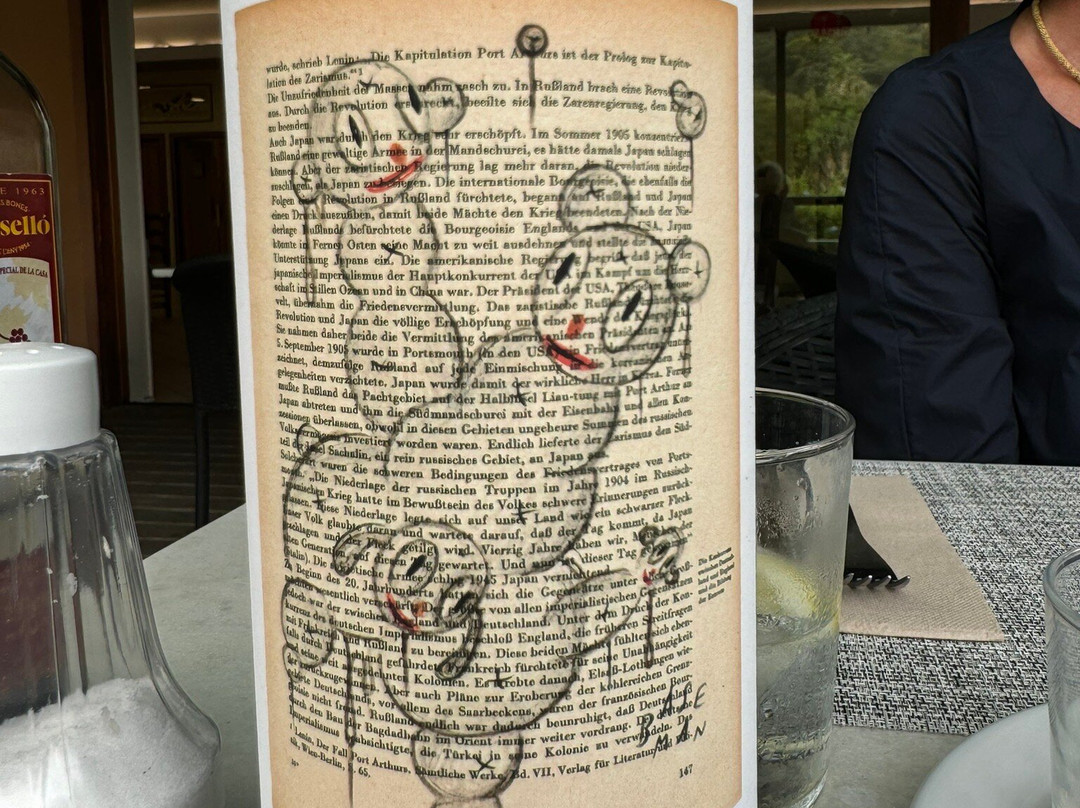 E 1963
selló
PECIAL DE LA CASA
wurde, schrieb Lenin: „Die Kapitulation Port Arthurs ist der Prolog zur Kapitu-
lation des Zarismus."¹
Die Unzufriedenheit der Massen nahm rasch zu. In Rußland brach eine Revoluti-
aus. Durch die Revolution erschreckt, beeilte sich die Zarenregierung, den
zu beenden.
Auch Japan war durch den Krieg sehr erschöpft. Im Sommer 1905 konzentrierte
Rußland eine gewaltige Armee in der Mandschurei, es hätte damals Japan schlagen
können. Aber der zaristischen Regierung lag mehr daran, die Revolution nieder-
zuschlagen, als Japan zu besiegen. Die internationale Bourgeoisie, die ebenfalls die
Folgen der Revolution in Rußland fürchtete, begann auf Rußland und Japan
einen Druck auszuüben, damit beide Mächte den Krieg beendeten. Nach der Nie-
derlage Rußlands befürchtete die Bourgeoisie Englands USA, Japan
könnte im Fernen Osten eine Macht zu weit ausdehnen und stellte die
Unterstützung Japans ein. Die amerikanische Regierung begriff, daß jetzt der
japanische Imperialismus der Hauptkonkurrent der USA im Kampf um die Herr-
schaft im Stillen Ozean und in China war. Der Präsident der USA, Theodore
velt, übernahm die Friedensvermittlung. Das zaristische Rußland
Revolution und Japan die völlige Erschöpfung und eine Wende
Sie nahmen daher beide die Vermittlung des amerikanischen Präsidenten an. Am
5. September 1905 wurde in Portsmouth (in den USA) ein Friedensvertrag unter-
zeichnet, demzufolge Rußland auf jede Einmischung in die koreanischen An-
gelegenheiten verzichtete. Japan wurde damit der wirkliche Herr in Korea. Ferner
mußte Rußland das Pachtgebiet auf der Halbinsel Liau-tung mit Port Arthur an
Japan abtreten und ihm die Südmandschurei mit der Eisenbahn und allen Kon-
zessionen überlassen, obwohl in diesen Gebieten ungeheure Summen des russischen
Volksvermögens investiert worden waren. Endlich lieferte der Zarismus den Süd-
teil der Insel Sachalin, ein rein russisches Gebiet, an Japan
Solcherart waren die schweren Bedingungen des Friedensvertrages von Ports-
mouth. „Die Niederlage der russischen Truppen im Jahre 1904 im Russisch-
Japanischen Krieg hatte im Bewußtsein des Volkes schwere Erinnerungen zurück-
gelassen. Diese Niederlage legte sich auf unser Land wie ein schwarzer Fleck.
Unser Volk glaubte daran und wartete darauf, daß der Tag kommt, da Japan
geschlagen und der Fleck getilgt wird. Vierzig Jahre haben wir, Menschen der
alten Generation, auf diesen Tag gewartet. Und nun ist dieser Tag gekommen
(Stalin). Die sowjetische Armee schlug 1945 Japan vernichtend.
Zu Beginn des 20. Jahrhunderts hatten sich die Gegensätze unter den Groß-
mächten wesentlich verschärft. Der größte von allen imperialistischen Gegensätzen
jedoch war der zwischen England und Deutschland. Unter dem Druck der Kon-
kurrenz des deutschen Imperialismus beschloß England, die früheren Streitfragen
mit Frankreich und Rußland zu bereinigen. Diese beiden Mächte fühlten sich eben-
falls durch Deutschland gefährdet. Frankreich fürchtete für seine Unabhängigkeit
und seine weit ausgedehnten Kolonien. Es erobte danach, Elsaß-Lothringen wie-
der zurückzugewinnen. Aber auch Pläne zur Eroberung der kohlereichen Grenz-
gebiete Deutschlands, vor allem des Saarbeckens, waren der französischen Bour-
geoisie nicht fremd. Rußland endlich war dadurch beunruhigt, daß Deutschland
durch den Bau der Bagdadbahn im Orient immer weiter vordrang. Der deutsche
Imperialismus beabsichtigte, die Türkei in seine Kolonie zu verwandeln. Der
¹ Lenin, Der Fall Port Arthurs, Sämtliche Werke, Bd. VII, Verlag für Literatur und Poli-
tik, Wien-Berlin, S. 65.
10*
147